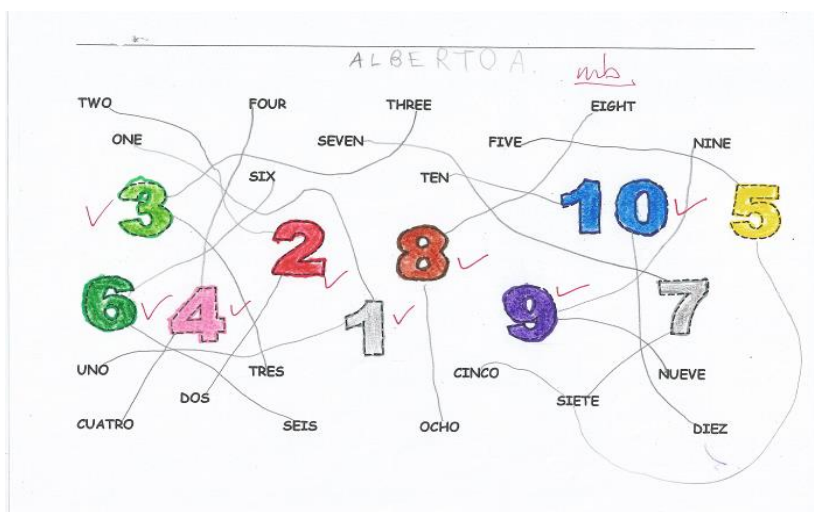 ALBERTO A.
mb.
TWO FOUR THREE EIGHT
ONE SEVEN FIVE NINE
SIX TEN
3 2 8 10 5
6 4 1 9 7
UNO TRES CINCO NUEVE
DOS SIETE
CUATRO SEIS OCHO DIEZ